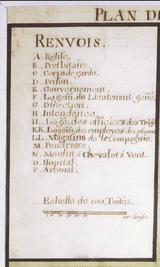 PLAN D
RENVOIS.
A. Eglise.
B. Presbitaire.
C. Corps de garde.
D. Prison.
E. Gouvernement.
F. Logem. du Lieutenant
G. Direction.
H. Intendence.
II. Loge. des officiers des
KK. Logem. des employez des
LL. Magasins de la Compagnie.
M. Poudriere.
N. Moulin à Chevalet à Vent.
O. Hopital.
P. Arsenal.
Echelle de 100. Toises.